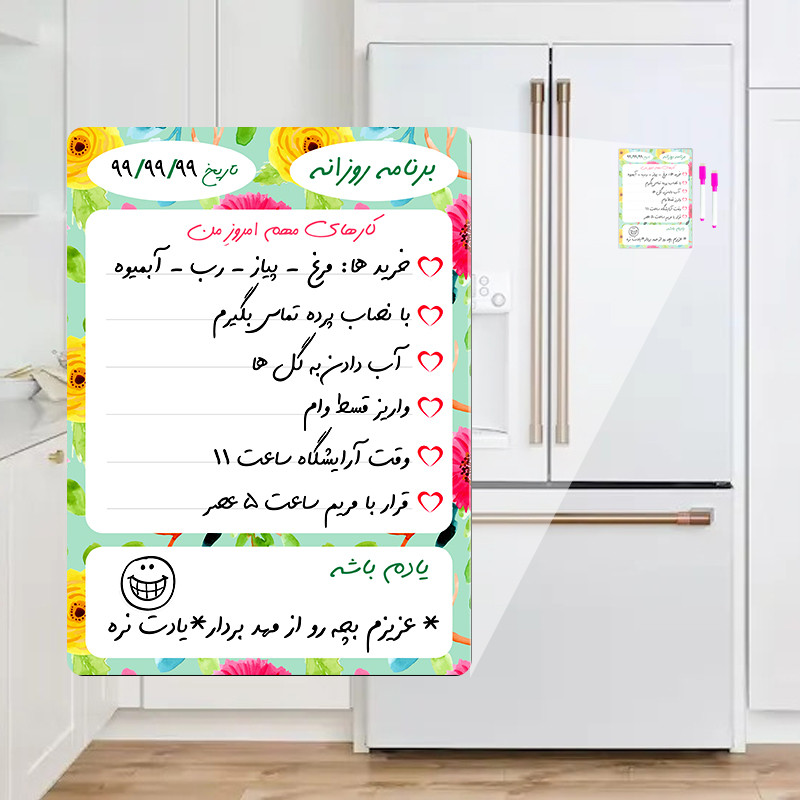 برنامه روزانه
تاریخ ۹۹/۹۹/۹۹
کارهای مهم امروزِ من
خرید ها: مرغ - پیاز - رب - آبمیوه
با نصاب پرده تماس بگیرم
آب دادن به گل ها
واریز قسط وام
وقت آرایشگاه ساعت ۱۱
قرار با مریم ساعت ۵ عصر
یادم باشه
* عزیزم بچه رو از مهد بردار*یادت نره